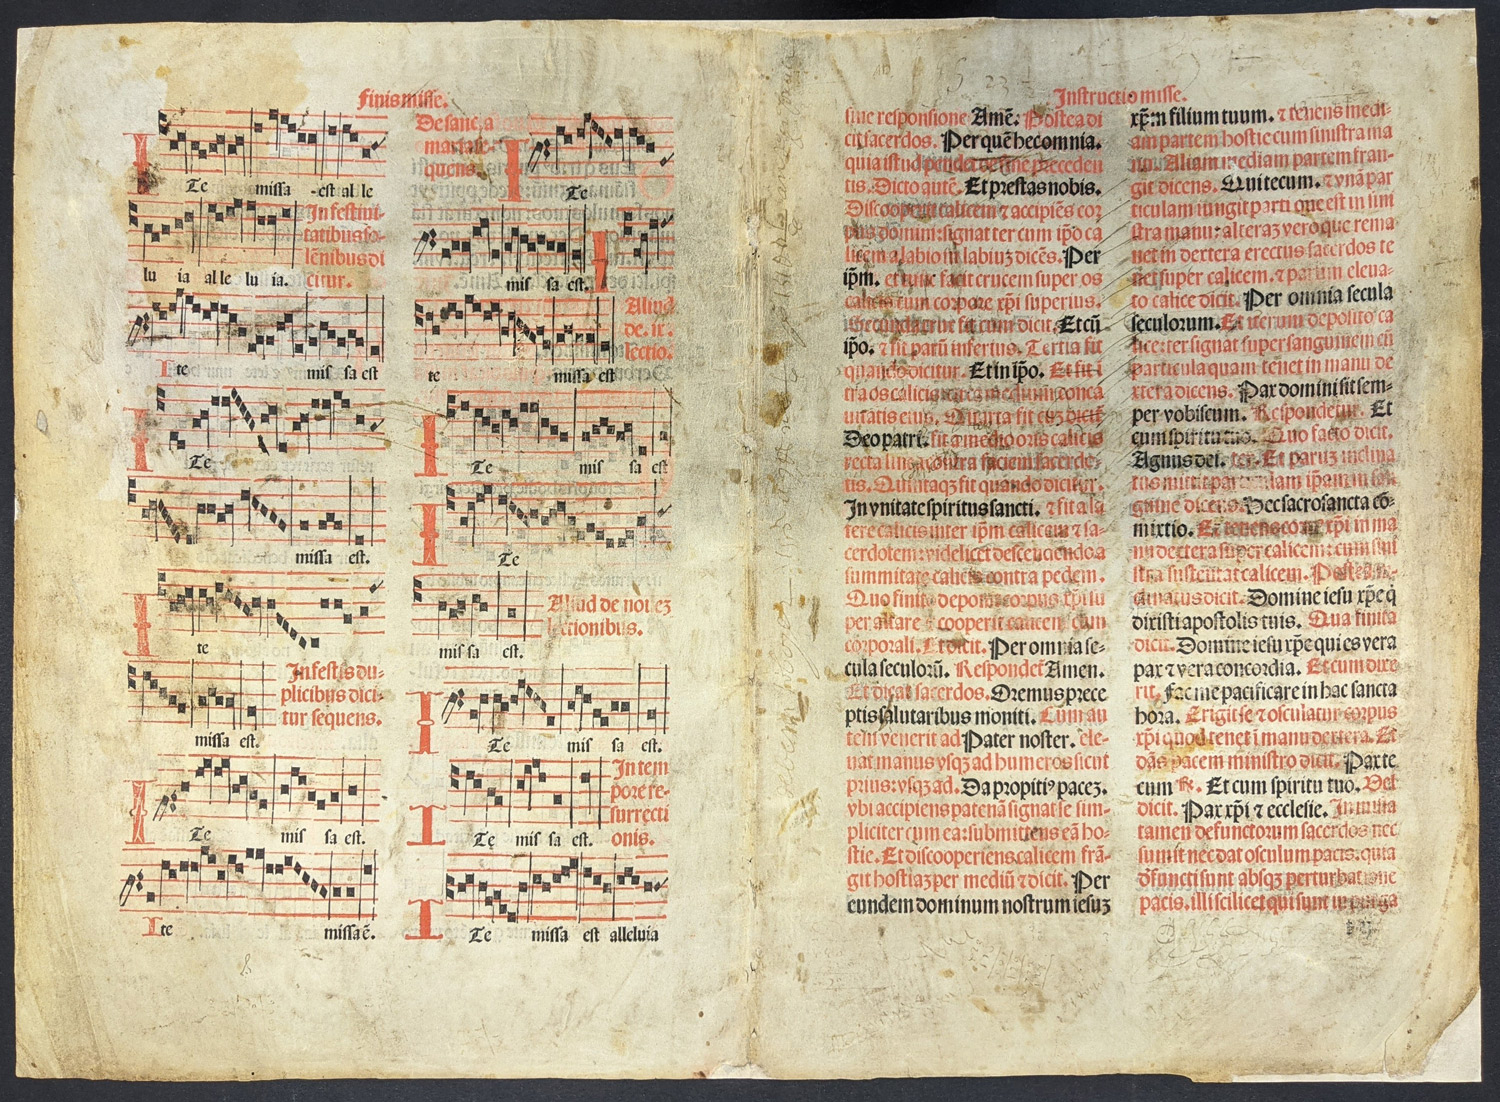 Finis misse.
Te missa est al le
lu ia al le lu ia.
In festiui-
tatibus so-
lēnibus di
citur.
Ite mis sa est
Te
missa est.
te
missa est.
In festis du-
plicibus dici-
tur sequens.
Te mis sa est.
Ite missa ē.
De sanc̄a
maria se-
quens.
Te
mis sa est.
Aliud
de .ix.
lectio.
te missa est
Te mis sa est
Te
mis sa est.
Aliud de nouez
lectionibus.
Te mis sa est.
In tem
pore re-
surrecti
onis.
Te mis sa est.
Te missa est alleluia
Instructio misse.
siue responsione Amē. Postea di
cit sacerdos. Per quē hec omnia.
quia istud
tis. Dicto autē. Et prestas nobis.
Discooperit calicem ⁊ accipiēs cor
pus domini: signat ter cum ip̄o ca
licem a labio in labiuz dicēs. Per
ip̄m. et tunc facit crucem super os
calicis cum corpore xp̄i superius.
Secunda cruce fit cum dicit. Et cū
ip̄o. ⁊ fit parū inferius. Tertia fit
quando dicitur. Et in ip̄o. Et fit i
tra os calicis
uitatis eius. Quarta fit cuz dicit̄
Deo patri. fit a medio oris calicis
recta linea contra faciem sacerdo-
tis. Quintaqz fit quando dicitur.
In vnitate spiritus sancti. ⁊ fit a la
tere calicis inter ip̄m calicem ⁊ sa-
cerdotem: videlicet descendendo a
summitate calicis contra pedem.
Quo finito deponit corpus xp̄i su
per altare ⁊ cooperit calicem cum
corporali. Et dicit. Per omnia se-
cula seculorū. Respondet̄ Amen.
Et dicat sacerdos. Oremus prece
ptis salutaribus moniti. Cum au
tem venerit ad Pater noster. ele-
uat manus vsqz ad humeros sicut
prius: vsqz ad. Da propitiꝰ pacez.
vbi accipiens patenā signat se sim-
pliciter cum ea: submittens eā ho-
stie. Et discooperiens calicem frā-
git hostiaz per mediū ⁊ dicit. Per
eundem dominum nostrum iesuz
xp̄m filium tuum. ⁊ tenens medi-
am partem hostie cum sinistra ma
nu. Aliam mediam partem fran-
git dicens. Qui tecum. ⁊ vnā par
ticulam iungit parti que est in sini
stra manu: alteraz vero que rema
net in dextera erectus sacerdos te
net super calicem. ⁊ parum eleua-
to calice dicit. Per omnia secula
seculorum. Et iterum deposito ca
lice: ter signat super sanguinem cū
particula quam tenet in manu de
xtera dicens. Pax domini sit sem-
per vobiscum. Respondetur. Et
cum spiritu tuo. Quo facto dicit.
Agnus dei. ter. Et parum inclina
tus mittit particulam ip̄am in san
guine dicens. Hec sacrosancta cō-
mixtio. Et tenens corpus xp̄i in ma
nu dextera super calicem: cum sini
stra sustentat calicem. Postea in-
clinatus dicit. Domine iesu xp̄e q̄
dixisti apostolis tuis. Qua finita
dicit. Domine iesu xp̄e qui es vera
pax ⁊ vera concordia. Et cum dixe
rit. fac me pacificare in hac sancta
hora. Erigit se ⁊ osculatur corpus
xp̄i quod tenet ī manu dextera. Et
dās pacem ministro dicit. Pax te
cum ℟. Et cum spiritu tuo. Vel
dicit. Pax xp̄i ⁊ ecclesie. In missa
tamen defunctorum sacerdos nec
sumit nec dat osculum pacis: quia
dfuncti sunt absqz perturbatione
pacis. illi scilicet qui sunt in purga